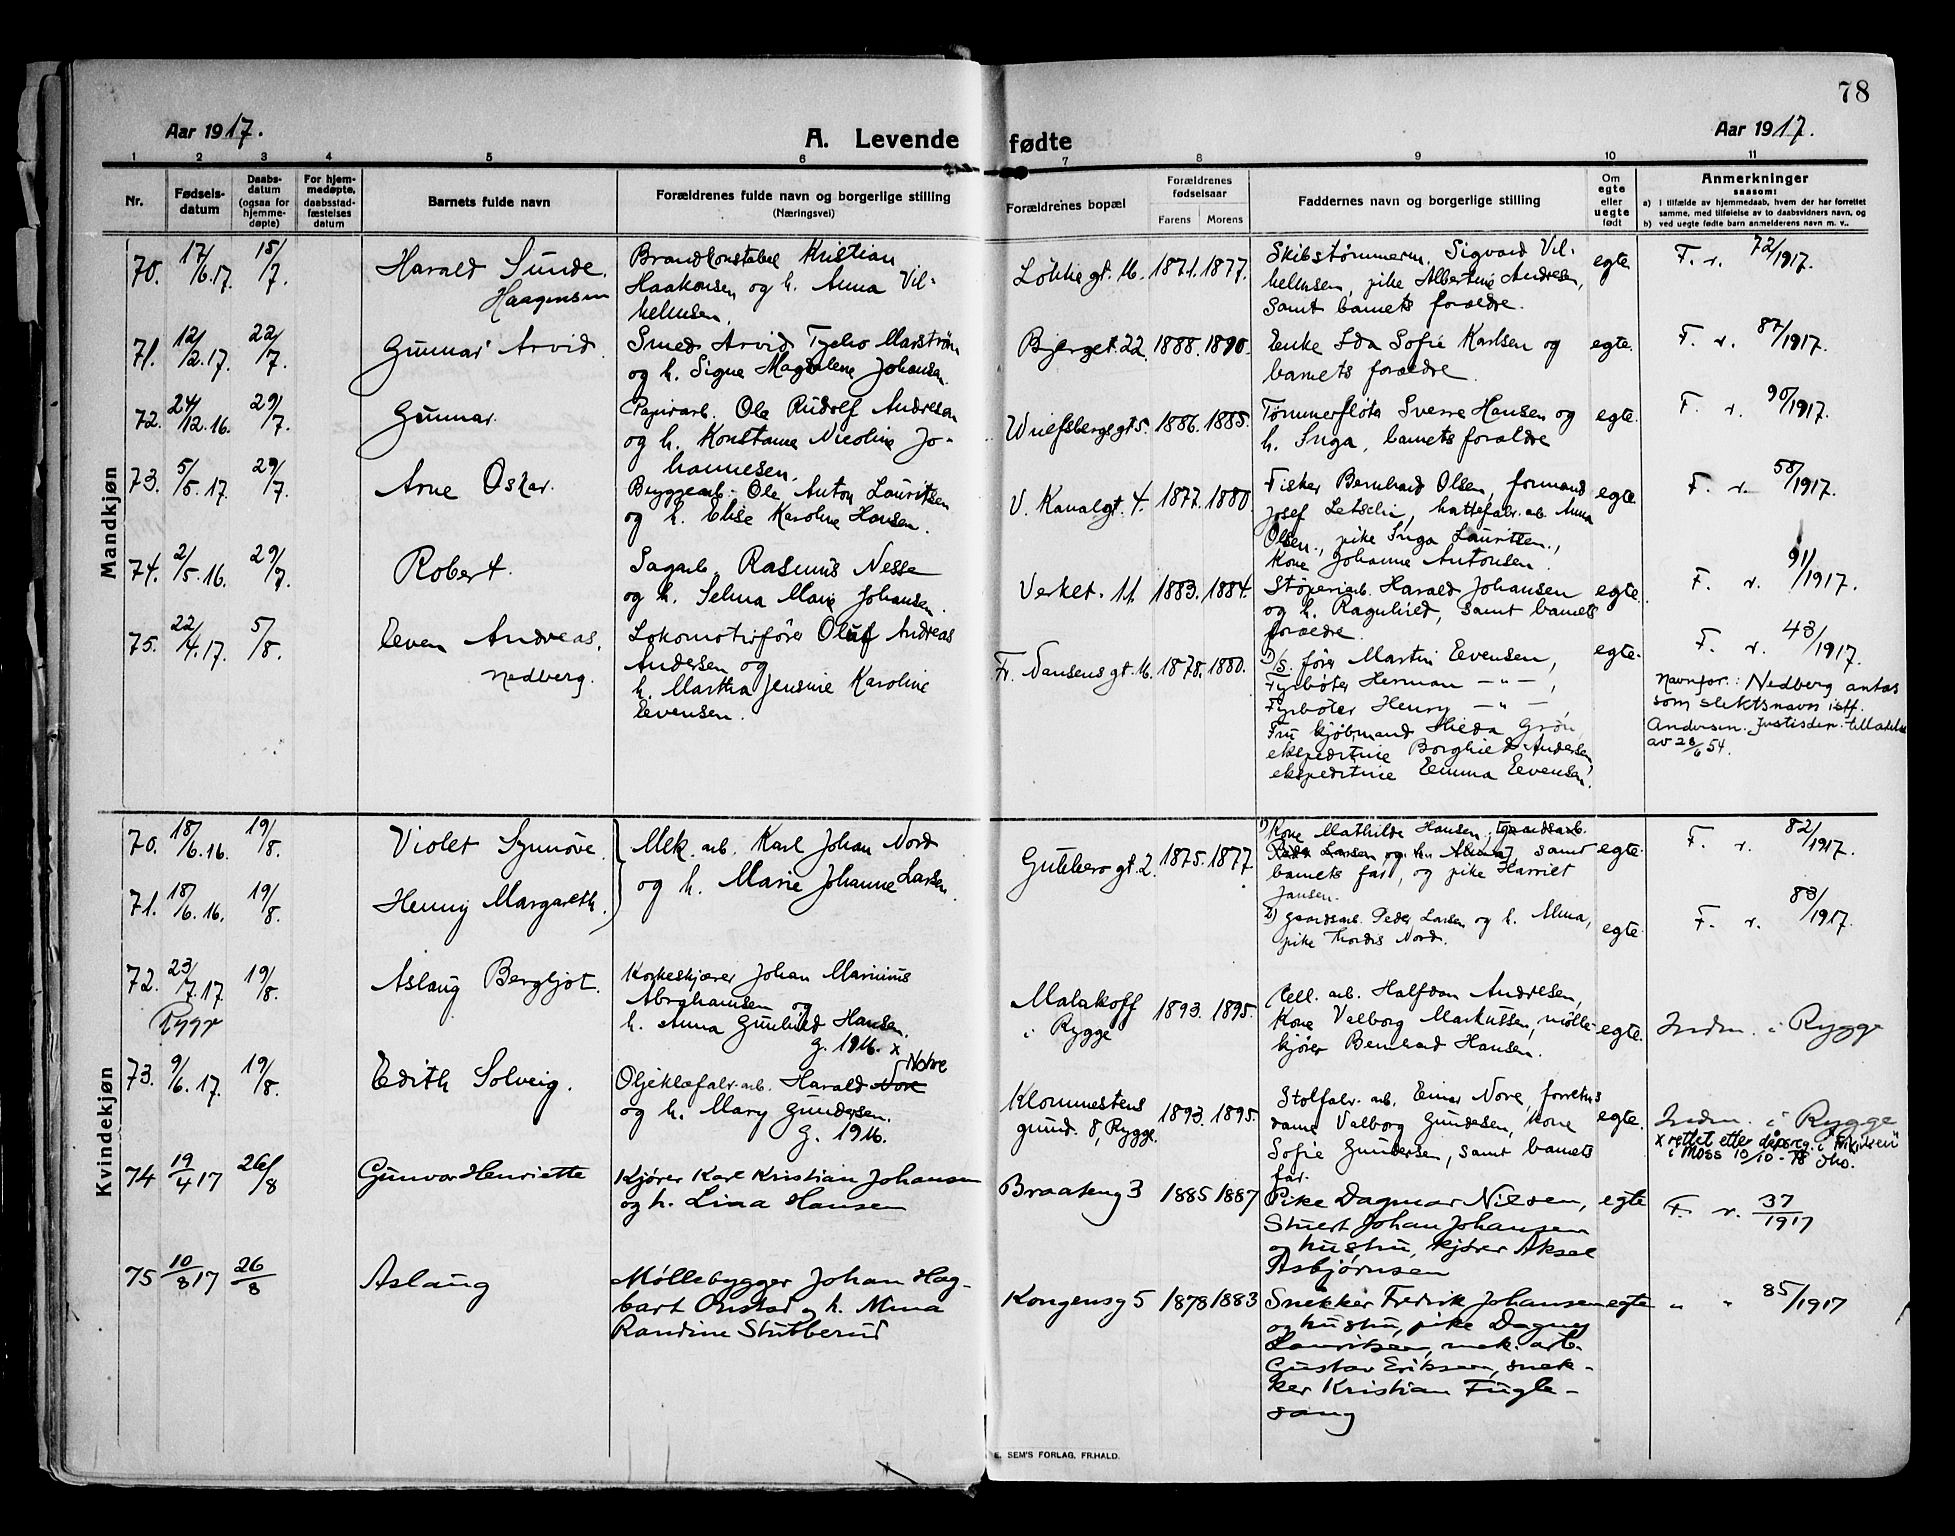 78
Aar 1917.
A. Levende fødte
Aar 1917.
1 2 3 4 5 6 7 8 9 10 11
Nr.
Fødselsdatum
Daabsdatum (ogsaa for hjemmedøpte)
For hjemmedøpte, daabsstadfæstelses datum
Barnets fulde navn
Forældrenes fulde navn og borgerlige stilling
(Næringsvei)
Forældrenes bopæl
Forældrenes fødselsaar
Farens Morens
Faddernes navn og borgerlige stilling
Om egte eller uegte født
Anmerkninger
saasom:
a) I tilfælde av hjemmedaab, hvem der har forrettet samme, med tilføielse av to daabsvidners navn, og
b) ved uegte fødte barn anmelderens navn m. v..
Mandkjøn
70. 17/6.17. 15/7. Harald Sunde.
Haagensen
Brandkonstabel Kristian
Haakonsen og h. Anna Vil-
helmsen.
Løkke gt. 16. 1871. 1877.
Skibstømmerm. Sigvard Vil-
helmsen, pike Albertine Andresen,
samt barnets forældre.
egte. F. r. 72/1917.
71. 12/2.17. 22/7. Gunnar Arvid.
Smed Arvid Tycho Marstrøm
og h. Signe Magdalene Johansen.
Bjerget. 22. 1888. 1890.
Enke Ida Sofie Karlsen og
barnets forældre.
egte. F. r. 87/1917.
72. 24/12.16. 29/7. Gunnar.
Papirarb. Ole Rudolf Andresen
og h. Konstanse Nicoline Jo-
hannesen.
gt 5. 1886. 1885.
Tømmerfløter Sverre Hansen og
h. Inga, barnets forældre
egte. F. r. 90/1917.
73. 5/5.17. 29/7. Arne Oskar.
Bryggearb. Ole Anton Lauritsen
og h. Elise Karoline Hansen.
V. Kanalgt. 4. 1877. 1880.
Fisker Bernhard Olsen, formand
Josef Letschin, hattefabr. arb. Anna
Olsen., pike Inga Lauritsen.,
Kone Johanne Antonsen.
egte. F. r. 58/1917.
74. 2/5.16. 29/7. Robert.
Sagarb. Rasmus Nesse
og h. Selma Marie Johansen.
Verket. 11. 1883. 1884.
Støperiarb. Harald Johansen
og h. Ragnhild, samt barnets
forældre.
egte. F. r. 91/1917.
75. 22/4.17. 5/8. Even Andreas.
Nedberg.
Lokomotivfører Oluf Andreas
Andersen og
h. Martha Jensine Karoline
Evensen.
Fr. Nansens gt. 16. 1878. 1880.
D/S. fører Martin Evensen,
Fyrbøter Herman — " —,
Fyrbøter Henry — " —,
Fru kjøbmand Hilda Grøn,
ekspeditrice Borghild Andersen,
ekspeditrice Emma Evensen.
egte. F. r. 43/1917.
Navnfor.: Nedberg antas
som slektsnavn istf.
Andersen. Justisdep. tillatelse
av 28/6 54.
Kvindekjøn
70. 18/6.16. 19/8. Violet Synnøve.
Mek. arb. Karl Johan Nord
og h. Marie Johanne Larsen.
Gutzberg gt. 2. 1875. 1877.
1) Kone Mathilde Hansen, gaardsarb.
Peder Larsen og h. Alma, samt
barnets far, og pike Harriet
Jansen.
egte. F. r. 82/1917.
71. 18/6.16. 19/8. Henny Margareth.
2) gaardsarb. Peder Larsen og h. Alma,
pike Thordis Nord.
egte. F. r. 83/1917.
72. 23/7.17. 19/8. Aslaug Bergljot.
Rygge
Korkeskjærer Johan Marinius
Abrahamsen og
h. Anna Gunhild Hansen.
g. 1916.
Malakoff
i Rygge
1893. 1895.
Cell. arb. Halfdan Andresen,
Kone Valborg Markussen, mølle-
kjører Bernhard Hansen.
egte. Indm. i Rygge
73. 9/6.17. 19/8. Edith Solveig.
x Nohre
Oljeklæfabr. arb. Harald Nore
og h. Mary Gundersen.
g. 1916.
Klommestens
grund. 8, Rygge.
1893. 1895.
Stolfabr. arb. Einar Nore, forretnings
dame Valborg Gundersen, kone
Sofie Gundersen, samt barnets
far.
egte. Indm. i Rygge
x rettet etter dåpsreg. i
i Moss 10/10 - 78
74 19/4 17 26/8 Gunvor Henriette
Kjører Karl Kristian Johansen
og h. Lina Hansen
Braateng 3 1885 1887
Pike Dagmar Nilsen,
Stuert Johan Johansen
og hustru, kjører Aksel
Asbjørnsen
egte F. r. 37/1917
75 10/8 17 26/8 Aslaug
Møllebygger Johan Hag-
bart Onstad og h. Mina
Randine Stubberud
Kongensg 5 1878 1883
Snekker Fredrik Johansen
og hustru, pike Dagny
Lauritsen, mek. arb.
Gustav Eriksen, snek-
ker Kristian Fugle-
sang
egte " " 85/1917
E. SEM'S FORLAG, FR.HALD.